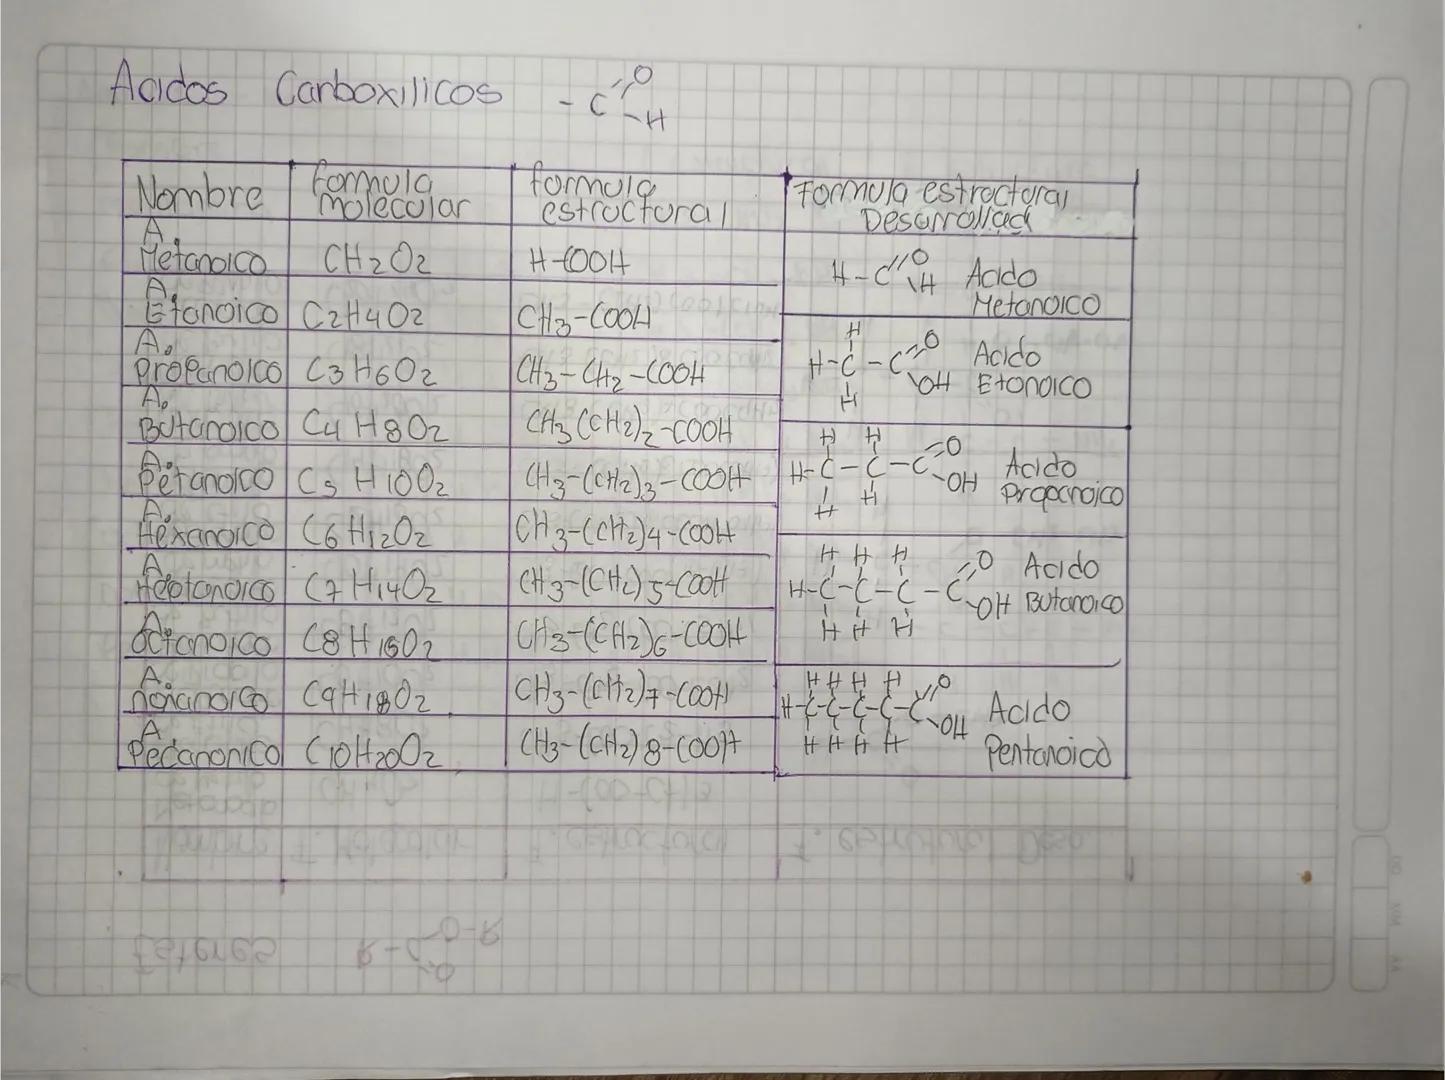 Acidos Carboxilicos -C=O-H
Nombre formula molecular formula estructural Formula estructural Desarrollad
A. Metanoico CH2O2 H-COOH
A. Etanoico C2H4O2 CH3-COOH
A. propanoico C3H6O2 CH3-CH2-COOH
A. Butanoico C4H8O2 CH3(CH2)2-COOH
A. Petanoico C5H10O2 CH3-(CH2)3-COOH
A. Hexanoico C6H12O2 CH3-(CH2)4-COOH
A. Heptanoico C7H14O2 CH3-(CH2)5-COOH
A. octanoico C8H16O2 CH3-(CH2)6-COOH
A. nonanoico C9H18O2 CH3-(CH2)7-COOH
A. Decanonico C10H20O2 CH3-(CH2)8-COOH
H-C=O H Acido Metanoico
H H-C-C=O OH Acido Etanoico
H
H H
H-C-C-C=O OH Acido Propanoico
H H
H H H
H-C-C-C-C=O OH Acido Butanoico
H H H
H H H H
H-C-C-C-C-C=O OH Acido Pentanoico
H H H H
Esteres R-C=O O-R